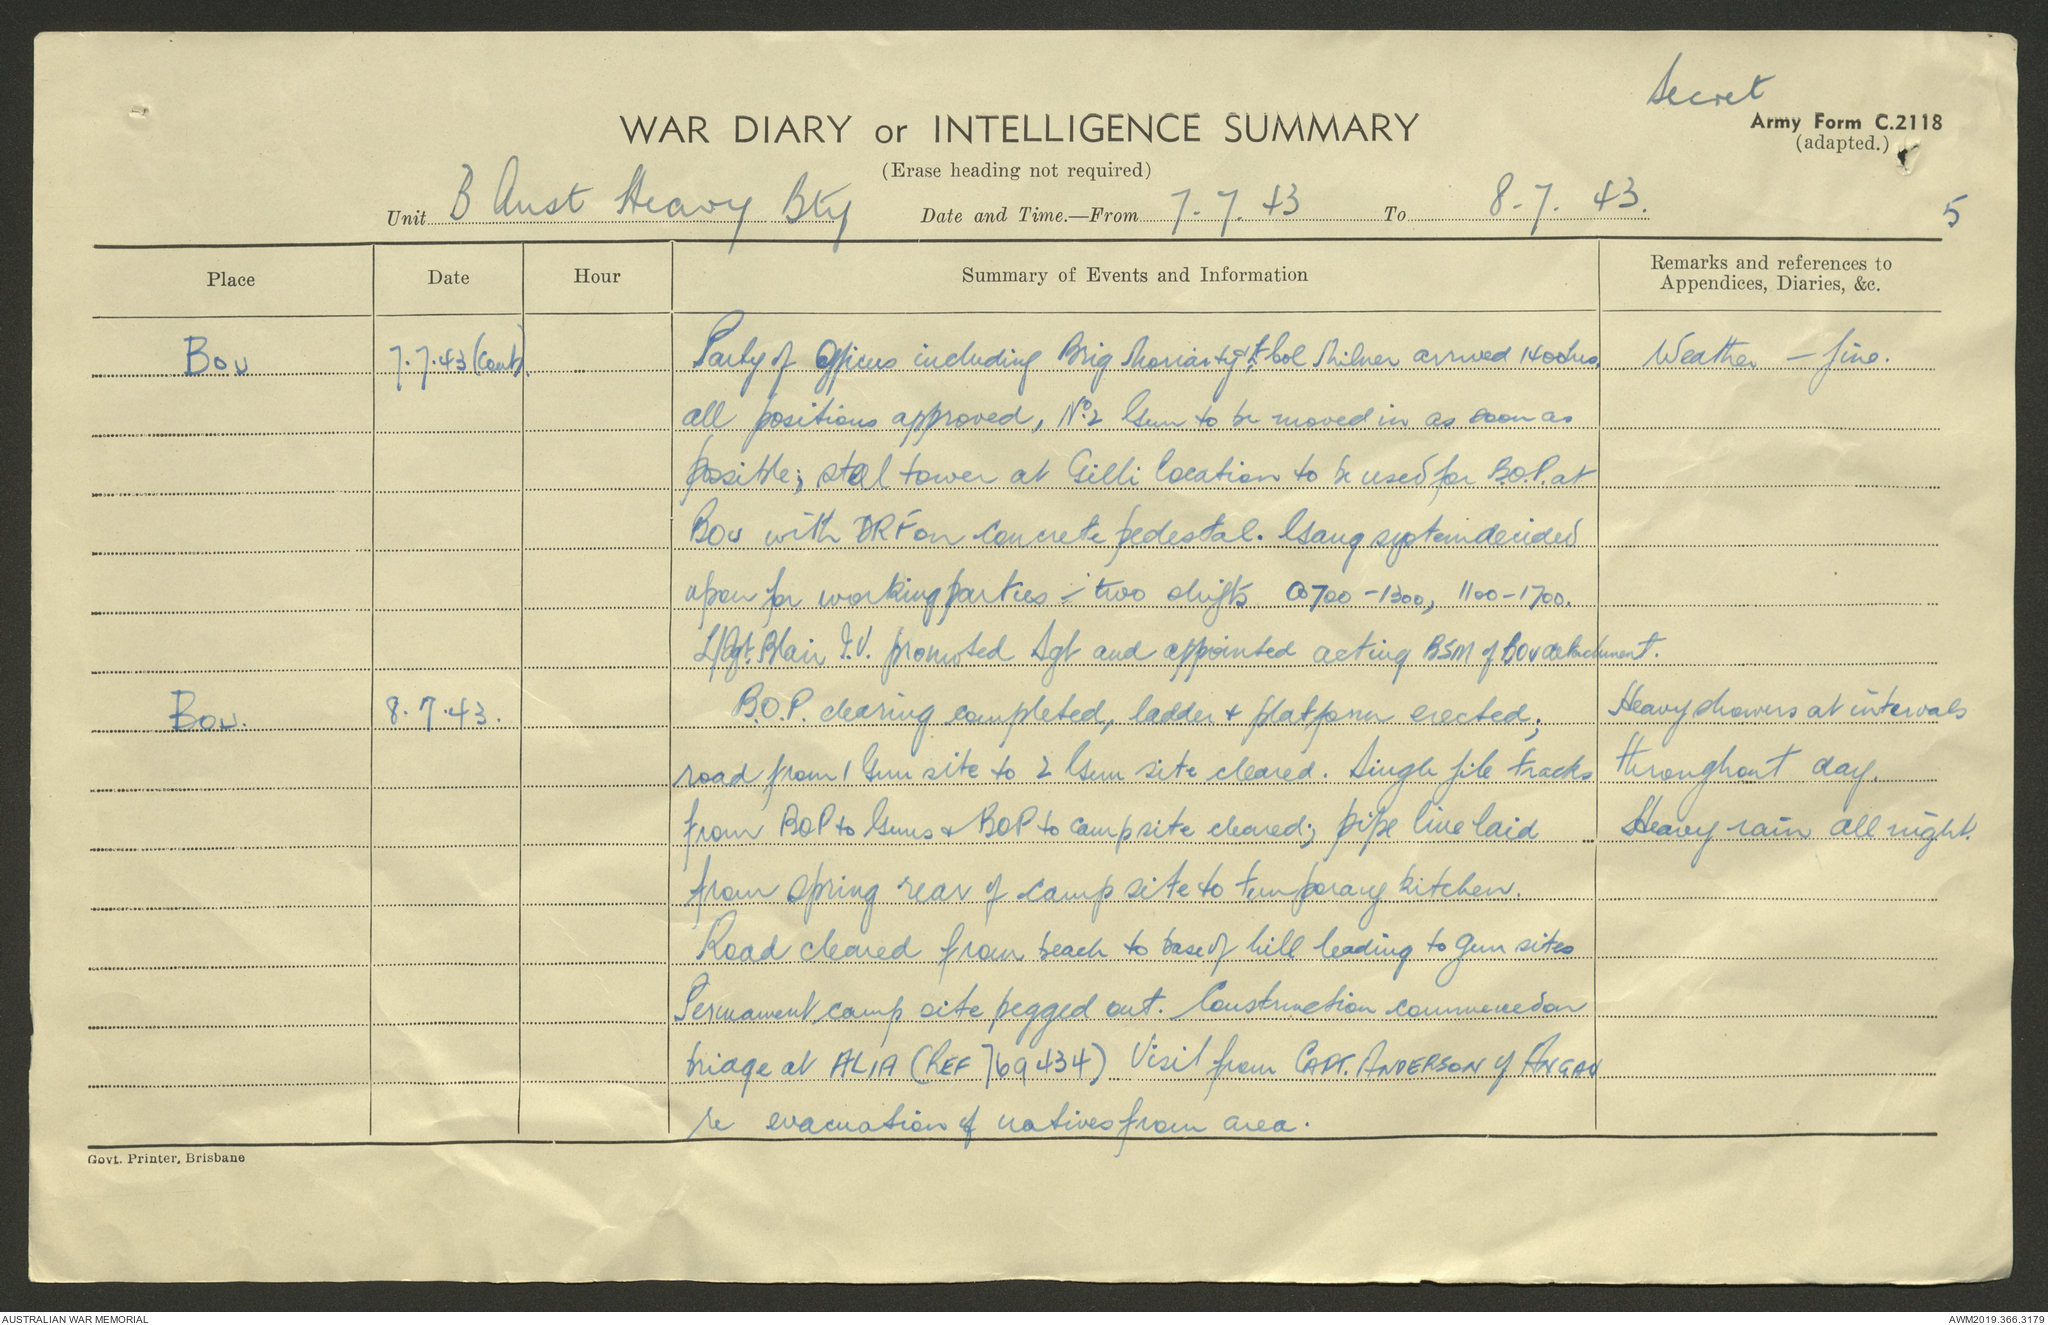 Secret
WAR DIARY or INTELLIGENCE SUMMARY
Army Form C.2118
(adapted.)
(Erase heading not required)
Unit B Aust Heavy Bty Date and Time.—From 7.7.43 To 8.7.43.
5
Place Date Hour Summary of Events and Information Remarks and references to
Appendices, Diaries, &c.
Bou 7.7.43 (Cont). Party of Officers including Brig Moriarty & Lt Col Milner arrived 1400hrs. Weather – fine.
all positions approved, No. 2 Gun to be moved in as soon as
possible; steel tower at Gilli location to be used for B.O.P. at
Bou with DRF on concrete pedestal. Gang system decided
upon for working parties – two shifts 0700-1300, 1100-1700.
L/Sgt. Blair promoted Sgt and appointed acting BSM of Bou detachment.
Bou. 8.7.43. B.O.P. clearing completed, ladder & platform erected; Heavy showers at intervals
road from 1 Gun site to 2 Gun site cleared. Single file tracks throughout day.
from BOP to Guns & BOP to camp site cleared; pipe line laid Heavy rain all night.
from spring rear of camp site to temporary kitchen.
Road cleared from beach to base of hill leading to gun sites
Permanent camp site pegged out. Construction commenced on
bridge at ALIA (REF 769434) Visit from CAPT. ANDERSON of ANGAU
re evacuation of natives from area.
Govt. Printer, Brisbane
AUSTRALIAN WAR MEMORIAL
AWM2019.366.3179